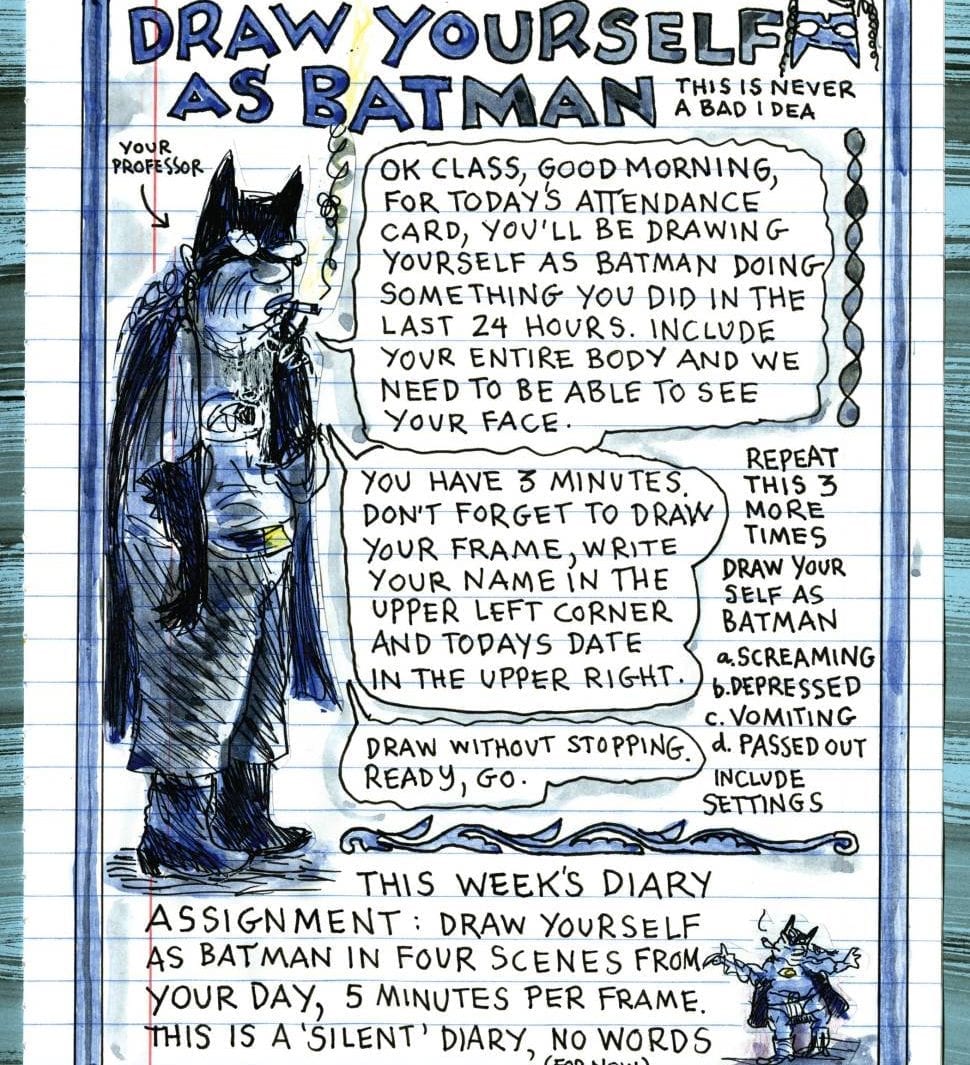 DRAW YOURSELF
AS BATMAN
THIS IS NEVER
A BAD IDEA
YOUR
PROFESSOR
OK CLASS, GOOD MORNING,
FOR TODAY'S ATTENDANCE
CARD, YOU'LL BE DRAWING
YOURSELF AS BATMAN DOING
SOMETHING YOU DID IN THE
LAST 24 HOURS. INCLUDE
YOUR ENTIRE BODY AND WE
NEED TO BE ABLE TO SEE
YOUR FACE.
YOU HAVE 3 MINUTES.
DON'T FORGET TO DRAW
YOUR FRAME, WRITE
YOUR NAME IN THE
UPPER LEFT CORNER
AND TODAYS DATE
IN THE UPPER RIGHT.
DRAW WITHOUT STOPPING.
READY, GO.
REPEAT
THIS 3
MORE
TIMES
DRAW YOUR
SELF AS
BATMAN
a. SCREAMING
b. DEPRESSED
c. VOMITING
d. PASSED OUT
INCLUDE
SETTINGS
THIS WEEK'S DIARY
ASSIGNMENT: DRAW YOURSELF
AS BATMAN IN FOUR SCENES FROM
YOUR DAY, 5 MINUTES PER FRAME.
THIS IS A 'SILENT' DIARY, NO WORDS
(FOR NOW)